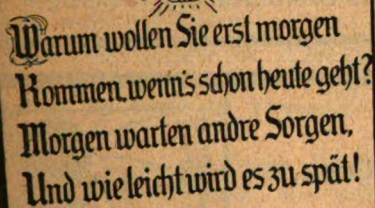 Warum wollen Sie erst morgen
Kommen, wenn's schon heute geht?
Morgen warten andre Sorgen,
Und wie leicht wird es zu spät!